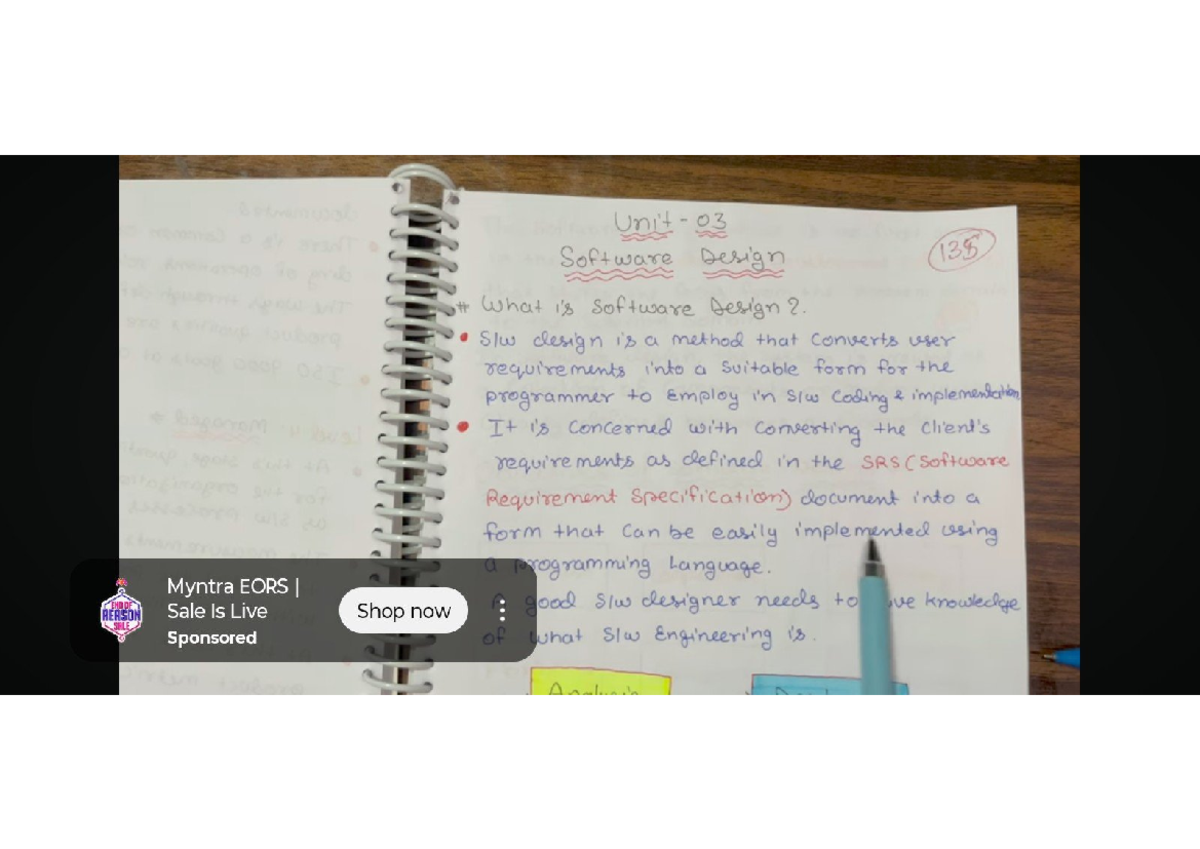 Unit - 03
Software Design
138
# What is Software Design?
• S/w design is a method that converts user
requirements into a suitable form for the
programmer to employ in s/w coding & implementation
• It is concerned with converting the client's
requirements as defined in the SRS (Software
Requirement Specification) document into a
form that can be easily implemented using
a programming language.
A good s/w designer needs to knowledge
of what s/w Engineering is.
Analysis
Myntra EORS |
Sale Is Live
Sponsored
Shop now
END OF
REASON
SALE